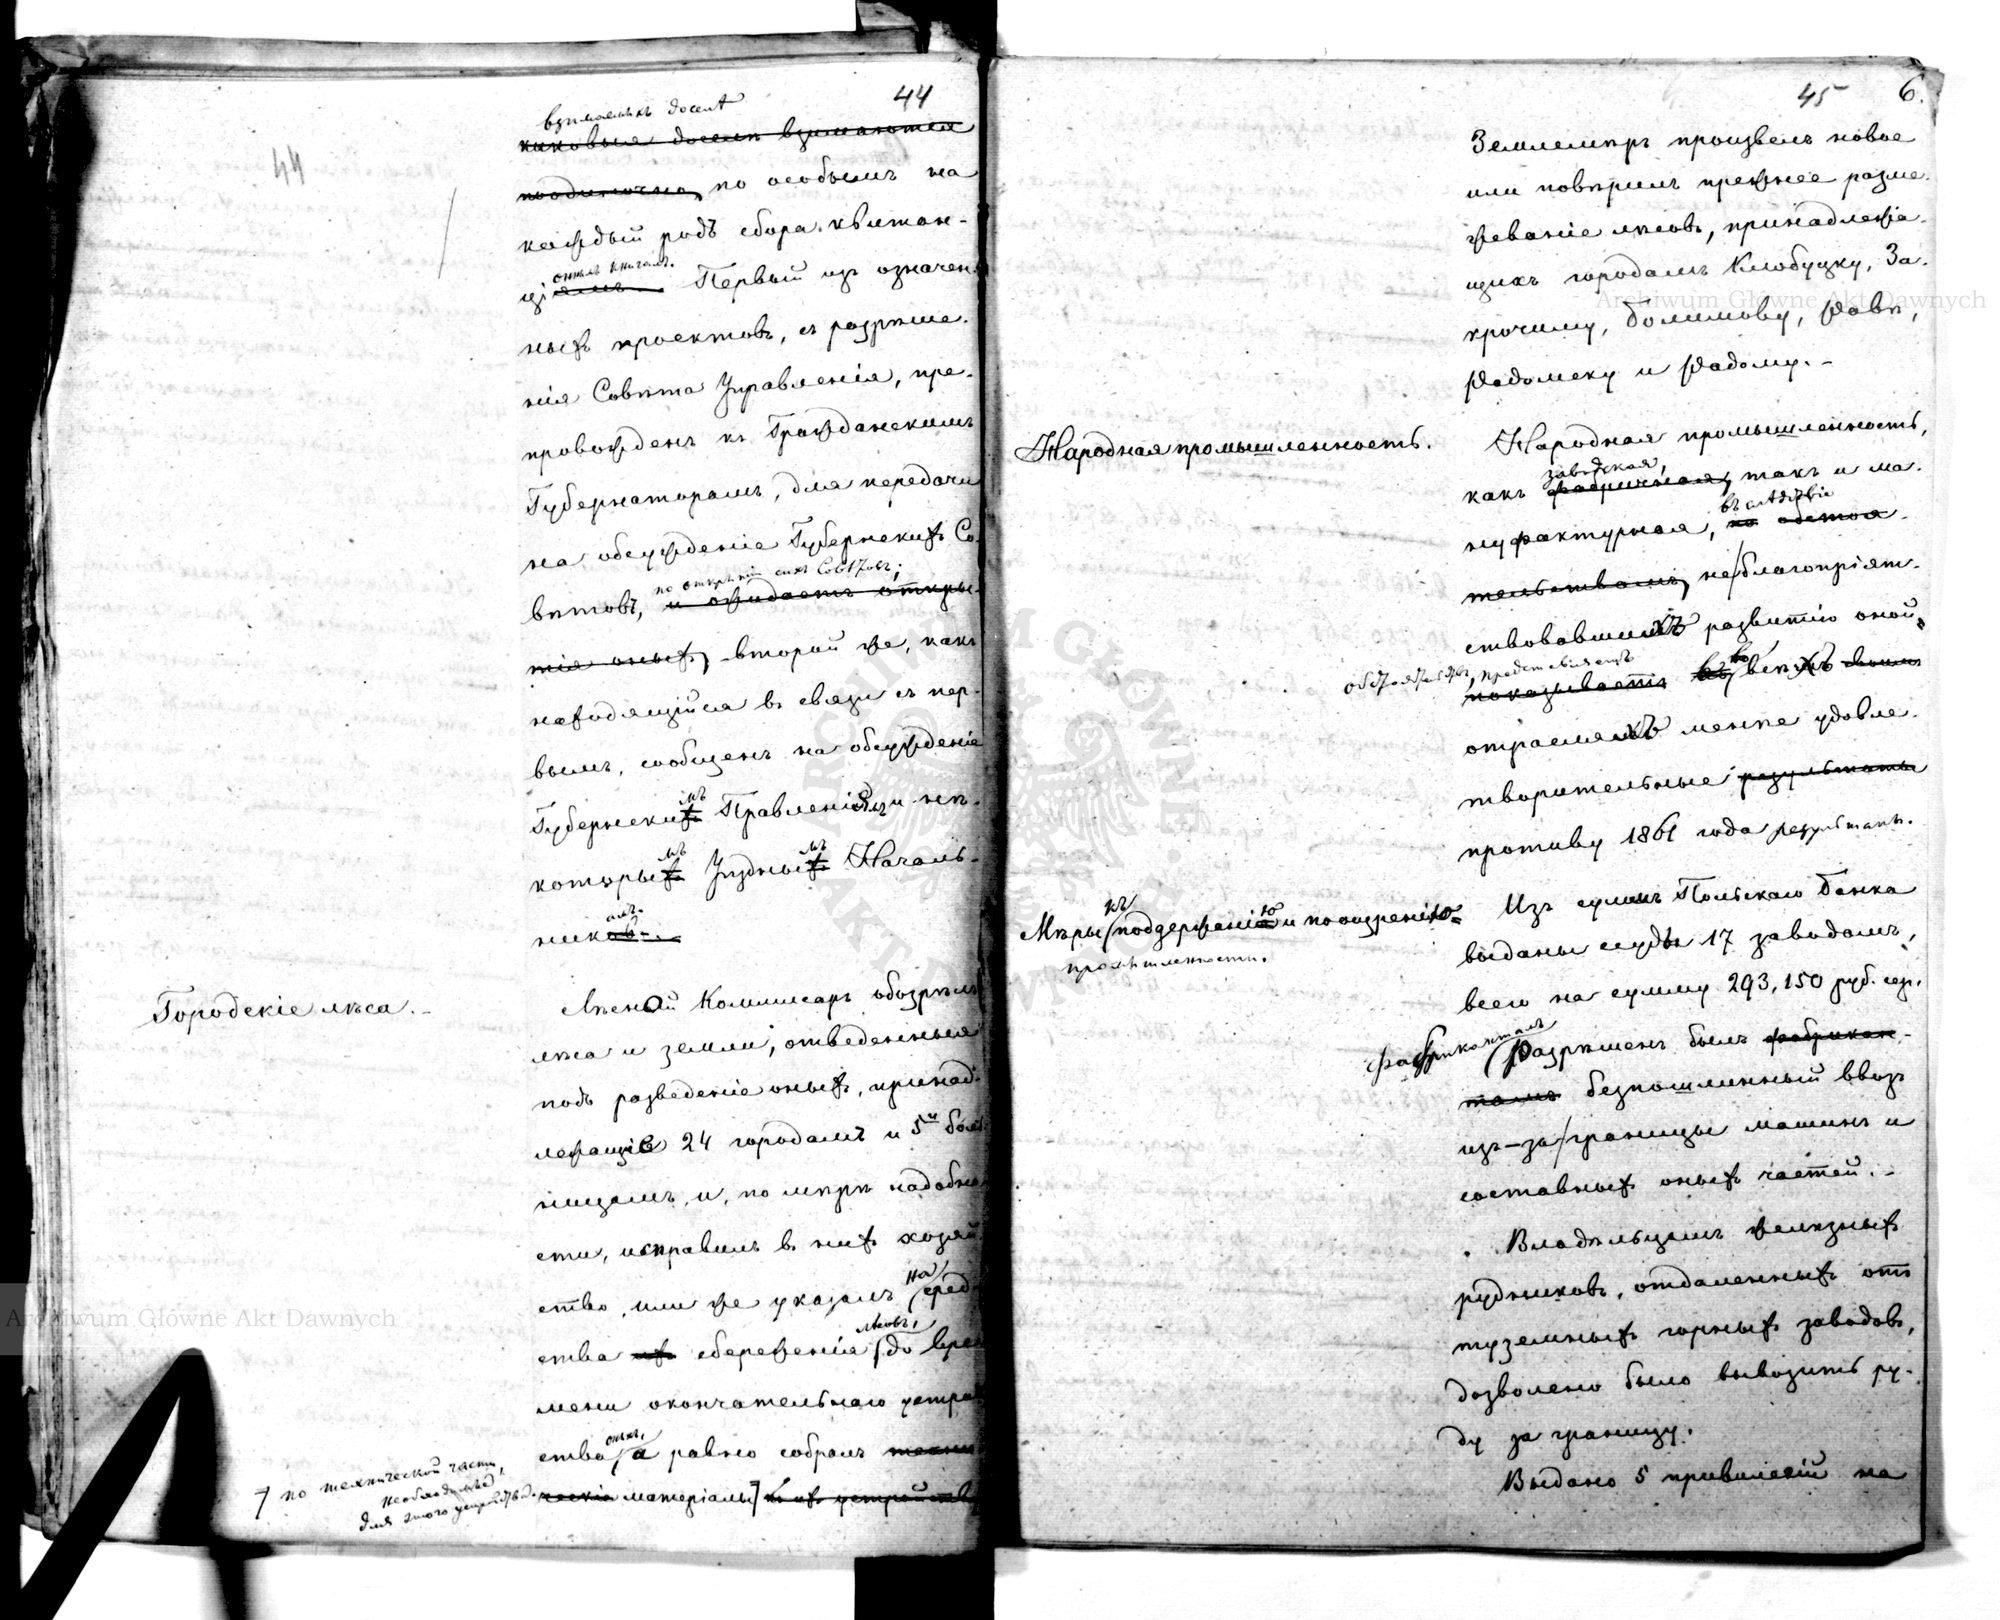 44
44
взимаемыхъ досель
каковыя досель взимаются
поодиночно, по особымъ на
каждый родъ сбора квитан-
онымъ книгамъ.
ціямъ Первый изъ означен-
ныхъ проектовъ, съ разрѣше-
нія Совѣта Управленія, пре-
провожденъ къ Гражданскимъ
Губернаторамъ, для передачи
на обсужденіе Губернскихъ Со-
по открытіи сихъ Совѣтовъ;
вѣтовъ, и ожидаетъ откры-
тія оныхъ, второй же, какъ
находящійся въ связи съ пер-
вымъ, сообщенъ на обсужденіе
Губернскихъ мъ Правленіямъ и нѣ-
которыхъ мъ Уѣздныхъ мъ Началь-
амъ.
никовъ.
Городскіе лѣса.-
Лѣсной Коммисаръ обозрѣлъ
лѣса и земли, отведенныя
подъ разведеніе оныхъ, принад-
лежащіе 24 городамъ и 5ти боль-
ницамъ и, по мѣрѣ надобно-
сти, исправилъ въ нихъ хозяй-
ство, или же указалъ на сред-
лѣсовъ,
ства ихъ сбереженія до вре-
мени окончательнаго устрой-
оныхъ,
ства, а равно собралъ техни-
ческіе матеріалы къ ихъ устройству
по технической части,
необходимые
для этого устройства.
45 6.
Землемѣръ произвелъ новое
или повѣрилъ прежнее разме-
жеваніе лѣсовъ, принадлежа-
щихъ городамъ Клобуцку, За-
крочиму, Болимову, Равѣ,
Радомску и Радому.-
Народная промышленность.
Народная промышленность,
заводская,
какъ фабричная, такъ и ма-
въ слѣдствіе
нуфактурная, по обстоя-
тельствамъ, неблагопріят-
ствовавшихъ развитію оной,
обстоятельствъ, представляетъ
показываетъ въ во всѣхъ своихъ
отрасляхъ менѣе удовле-
творительные результаты
противу 1861 года результаты.
Мѣры къ поддержанію и поощренію
промышленности.
Изъ суммъ Польскаго Банка
выданы ссуды 17 заводамъ,
всего на сумму 293,150 руб. сер.
фабрикантамъ
Разрѣшенъ былъ фабрикан-
тамъ безпошлинный ввозъ
изъ-за границы машинъ и
составныхъ оныхъ частей.-
Владѣльцамъ желѣзныхъ
рудниковъ, отдаленныхъ отъ
туземныхъ горныхъ заводовъ,
дозволено было вывозить ру-
ду за границу.
Выдано 5 привилегій на
Archiwum Główne Akt Dawnych
Archiwum Główne Akt Dawnych
ARCHIWUM GŁÓWNE AKT DAWNYCH